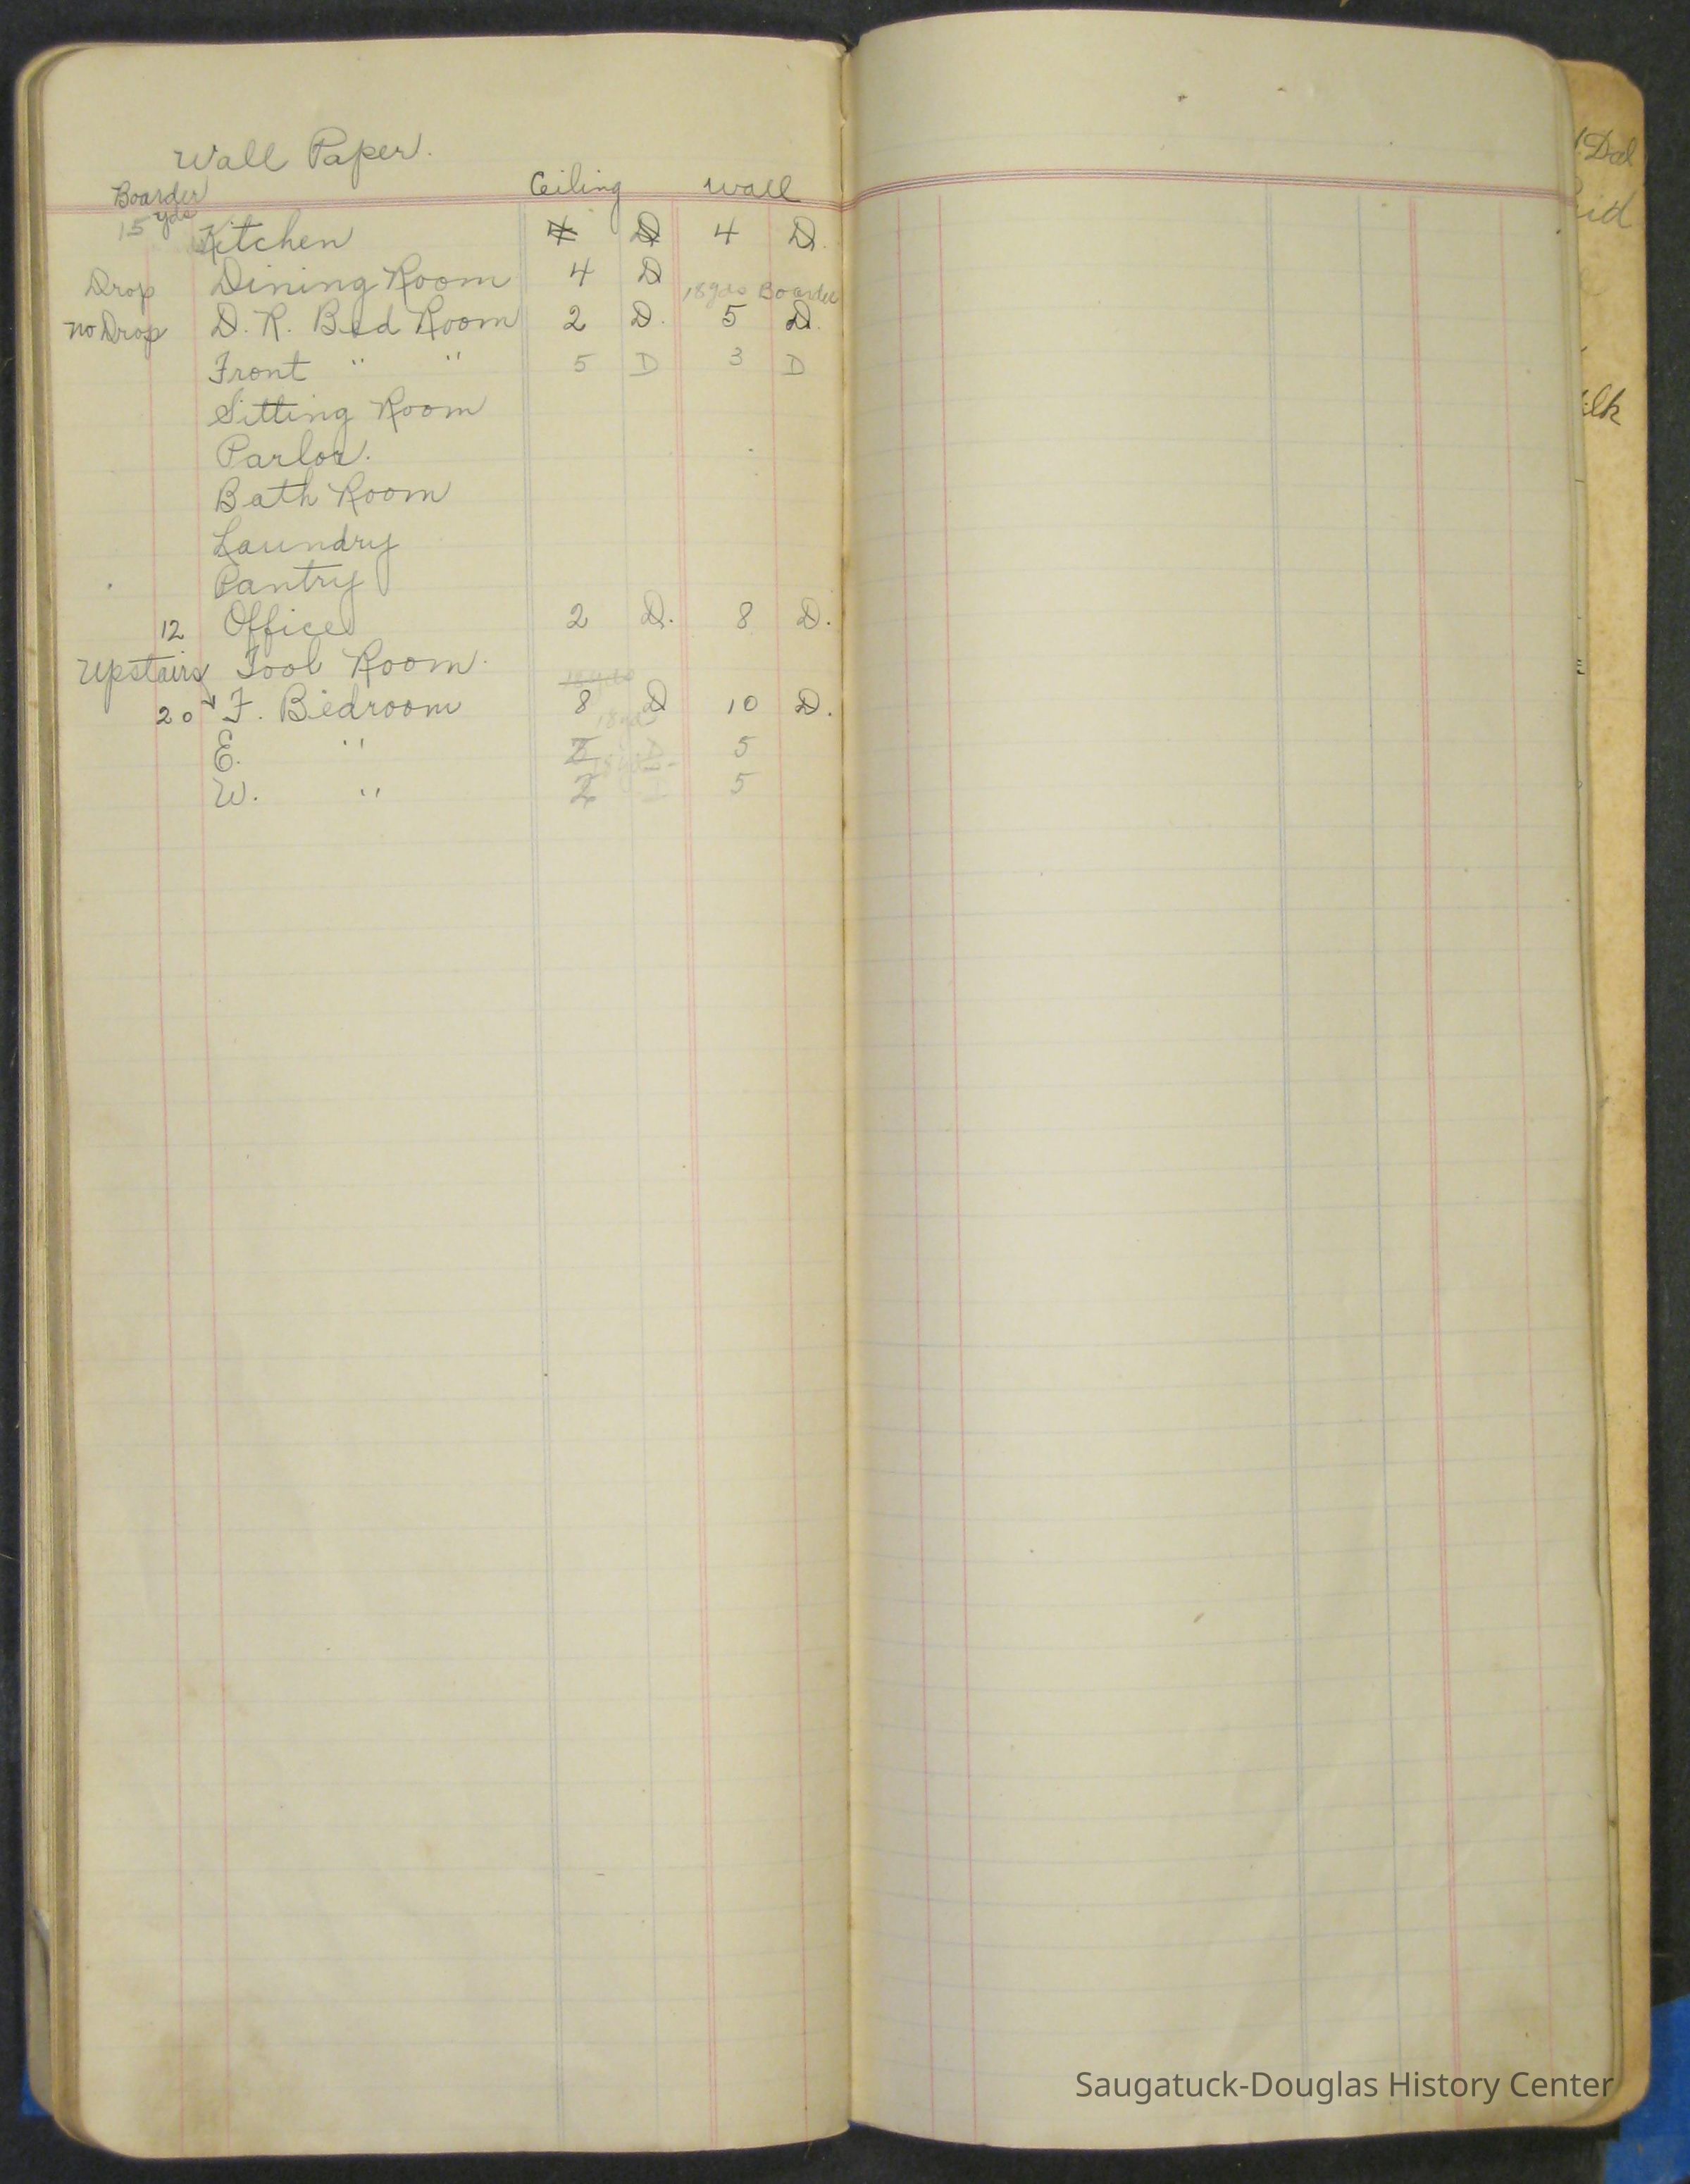 Wall Paper.
Boarder Ceiling Wall
15 yds Kitchen 4 D 4 D.
Drop Dining Room 4 D
18 yds Boarder
no Drop D. R. Bed Room 2 D. 5 D.
Front " " 5 D 3 D
Sitting Room
Parlor.
Bath Room
Laundry
Pantry
12 Office 2 D. 8 D.
Upstairs Tool Room.
18 yds
20 F. Bedroom 8 D 10 D.
18 yds
E. " 2 D 5
W. " 2 5
Saugatuck-Douglas History Center